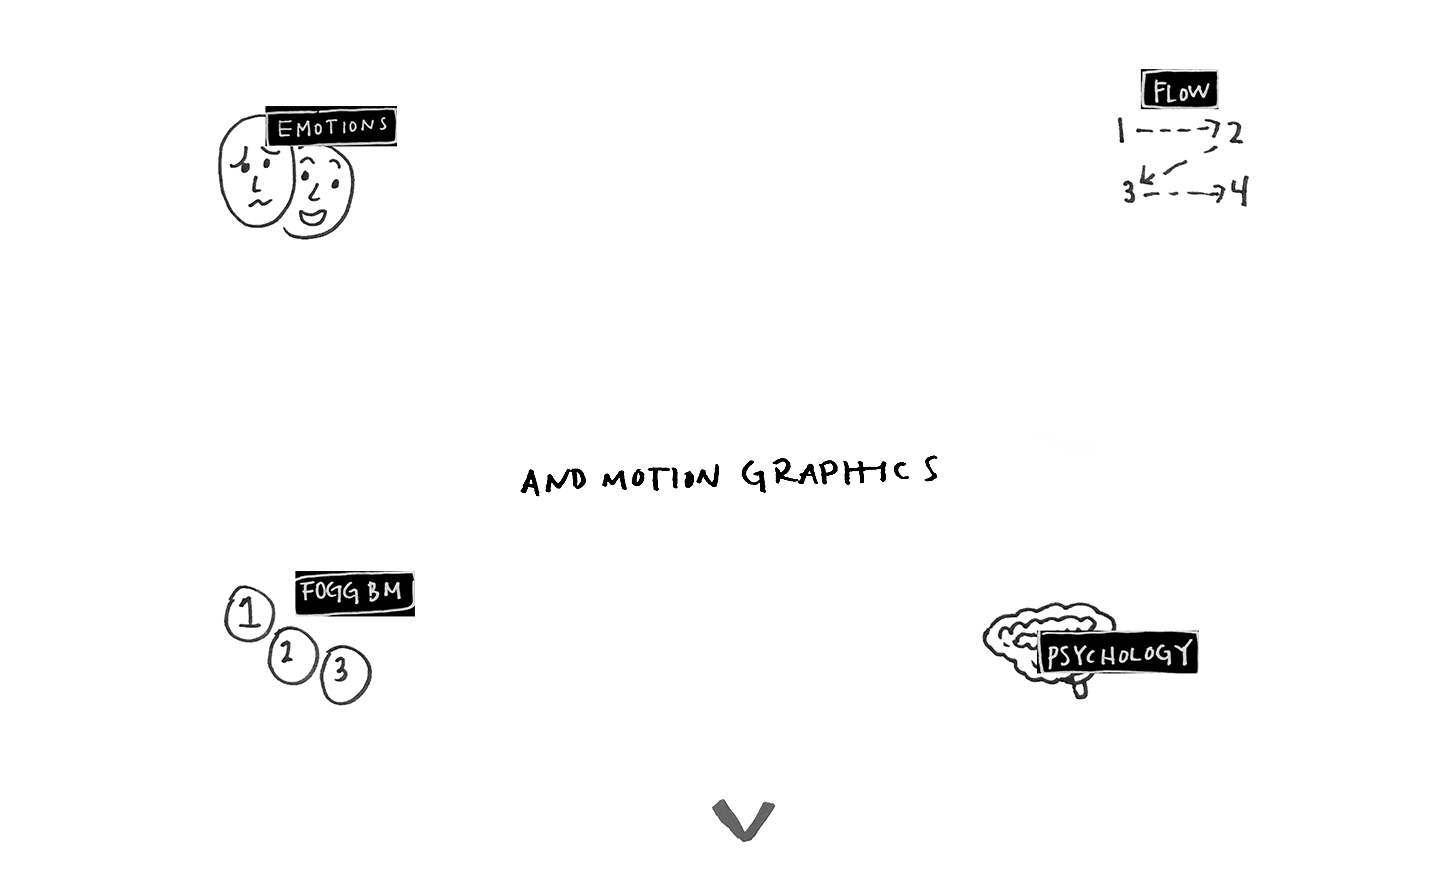 EMOTIONS
FLOW
1 2
3 4
AND MOTION GRAPHICS
FOGG BM
1
2
3
PSYCHOLOGY